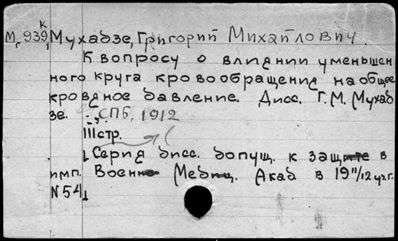 К
М, 939, Мухадзе, Григорий Михайлович.
К вопросу о влиянии уменьшен
ного круга кровообращения на общее
кровяное давление. Дисс. Г.М. Мухад
зе. СПб, 1912
III стр.
Серия дисс. допущ. к защите в
имп. Военно Медиц. Акад в 19 11/12 уч. г.
N 54